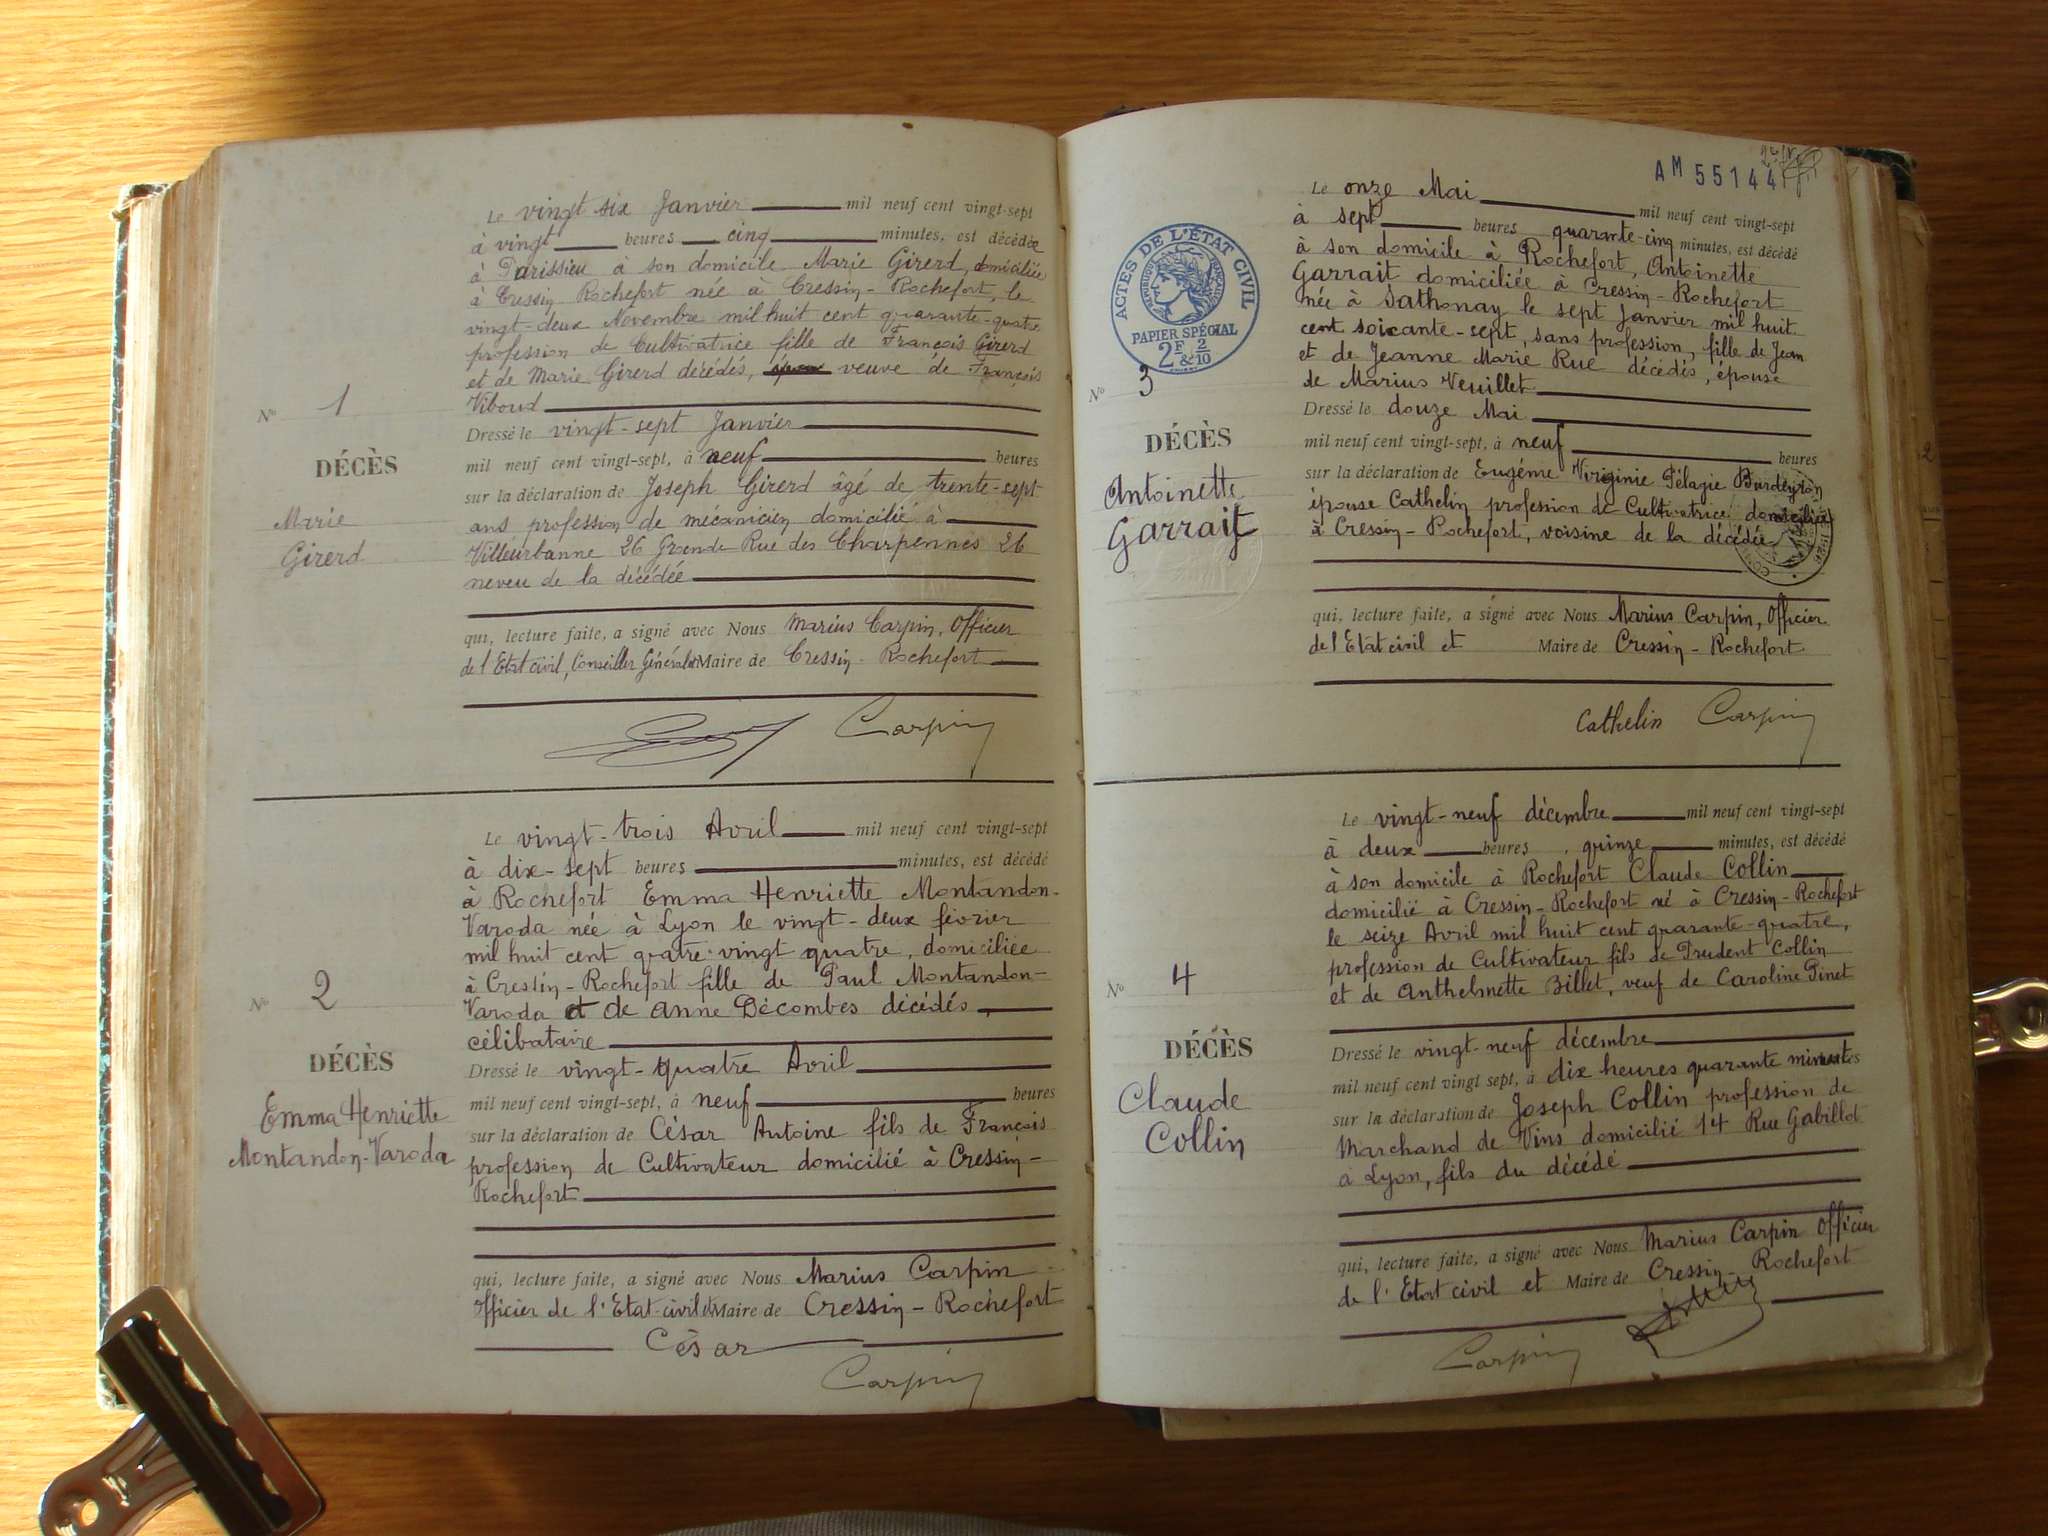 Le vingt six Janvier mil neuf cent vingt-sept
à vingt heures cinq minutes, est décédée
à Parissieu à son domicile Marie Girerd, domiciliée
à Cressin Rochefort née à Cressin-Rochefort, le
vingt-deux Novembre mil huit cent quarante-quatre
profession de Cultivatrice fille de François Girerd
et de Marie Girerd décédés, veuve de François
Viboud
Nº 1
DÉCÈS
Marie
Girerd
Dressé le vingt-sept Janvier
mil neuf cent vingt-sept, à neuf heures
sur la déclaration de Joseph Girerd âgé de trente-sept
ans profession de mécanicien domicilié à
Villeurbanne 26 Grande Rue des Charpennes 26
neveu de la décédée
qui, lecture faite, a signé avec Nous Marius Carpin, Officier
de l'Etat civil, Conseiller Général et Maire de Cressin-Rochefort
Carpin
Le vingt-trois Avril mil neuf cent vingt-sept
à dix-sept heures minutes, est décédé
à Rochefort Emma Henriette Montandon-
Varoda née à Lyon le vingt-deux février
mil huit cent quatre-vingt quatre, domiciliée
à Cressin-Rochefort fille de Paul Montandon-
Varoda et de Anne Décombes décédés,
célibataire
Nº 2
DÉCÈS
Emma Henriette
Montandon-Varoda
Dressé le vingt-quatre Avril
mil neuf cent vingt-sept, à neuf heures
sur la déclaration de César Antoine fils de François
profession de Cultivateur domicilié à Cressin-
Rochefort
qui, lecture faite, a signé avec Nous Marius Carpin
Officier de l'Etat-civil et Maire de Cressin-Rochefort
César
Carpin
AM 55144
ACTES DE L'ÉTAT CIVIL
RÉPUBLIQUE FRANÇAISE
PAPIER SPÉCIAL
2F & 2/10
Le onze Mai mil neuf cent vingt-sept
à sept heures quarante-cinq minutes, est décédé
à son domicile à Rochefort, Antoinette
Garrait domiciliée à Cressin-Rochefort
née à Sathonay le sept Janvier mil huit
cent soixante-sept, sans profession, fille de Jean
et de Jeanne Marie Rue décédés, épouse
de Marius Veuillet
Nº 3
DÉCÈS
Antoinette
Garrait
Dressé le douze Mai
mil neuf cent vingt-sept, à neuf heures
sur la déclaration de Eugénie Virginie Pélagie Burdeyron
épouse Cathelin profession de Cultivatrice domiciliée
à Cressin-Rochefort, voisine de la décédée
qui, lecture faite, a signé avec Nous Marius Carpin, Officier
de l'Etat civil et Maire de Cressin-Rochefort
Cathelin Carpin
Le vingt-neuf décembre mil neuf cent vingt-sept
à deux heures, quinze minutes, est décédé
à son domicile à Rochefort Claude Collin
domicilié à Cressin-Rochefort né à Cressin-Rochefort
le seize Avril mil huit cent quarante-quatre,
profession de Cultivateur fils de Prudent Collin
et de Anthelmette Billet, veuf de Caroline Pinet
Nº 4
DÉCÈS
Claude
Collin
Dressé le vingt-neuf décembre
mil neuf cent vingt sept, à dix heures quarante minutes
sur la déclaration de Joseph Collin profession de
Marchand de Vins domicilié 14 Rue Gabillot
à Lyon, fils du décédé
qui, lecture faite, a signé avec Nous Marius Carpin Officier
de l'Etat civil et Maire de Cressin-Rochefort
Carpin